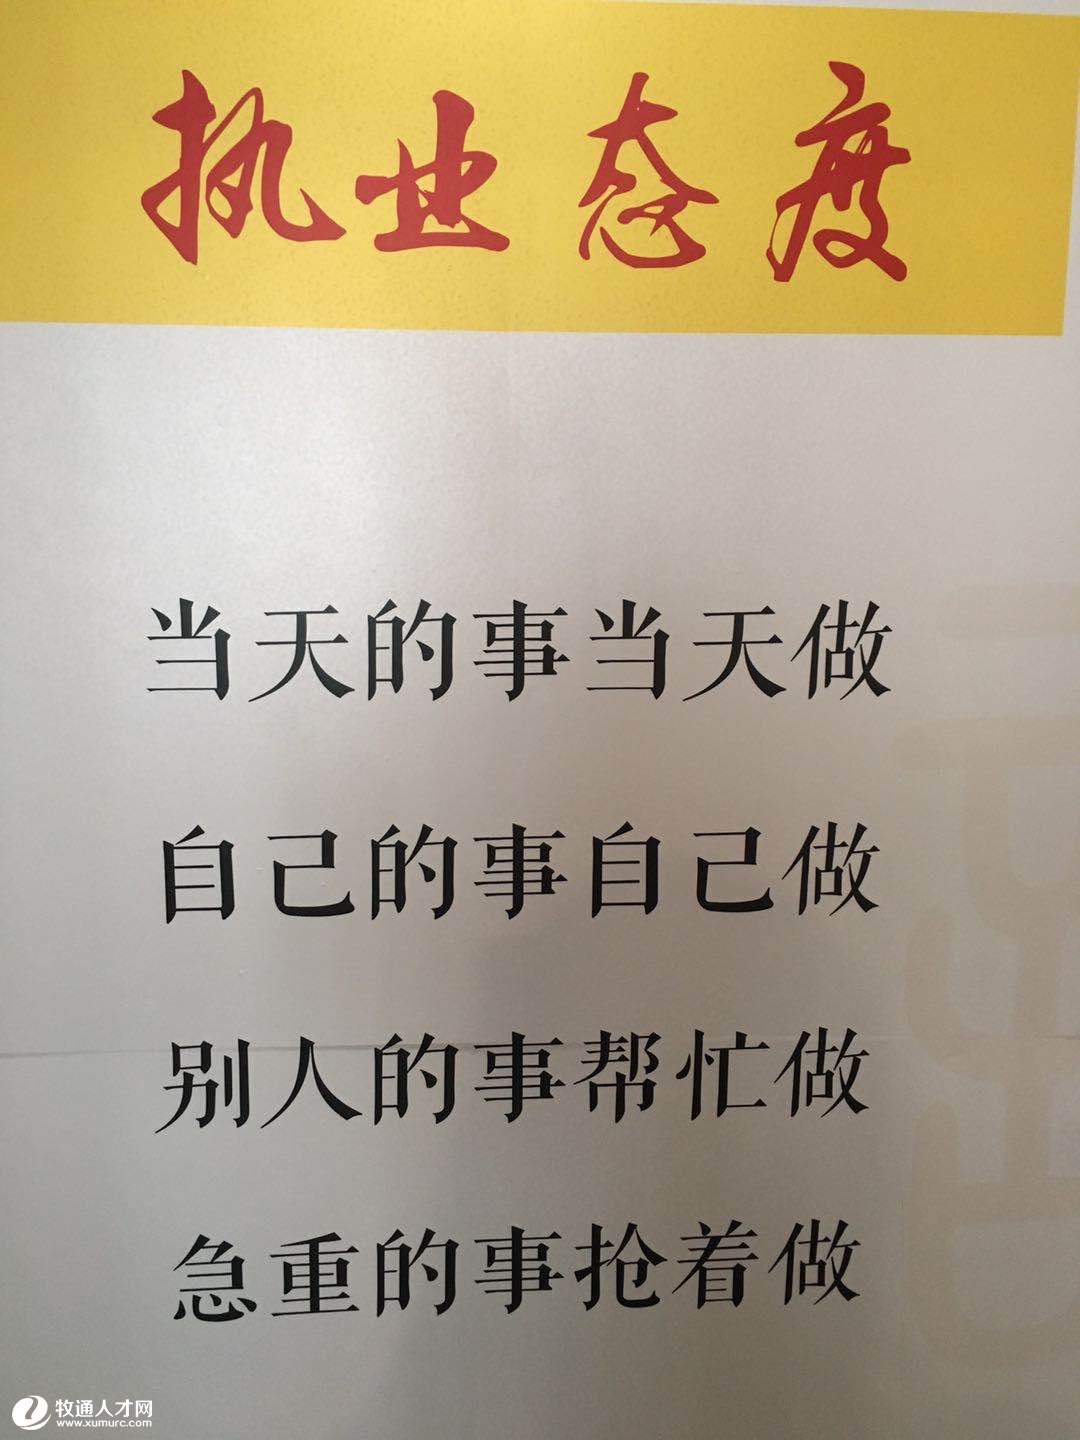 执业态度
当天的事当天做
自己的事自己做
别人的事帮忙做
急重的事抢着做
牧通人才网
www.xumurc.com